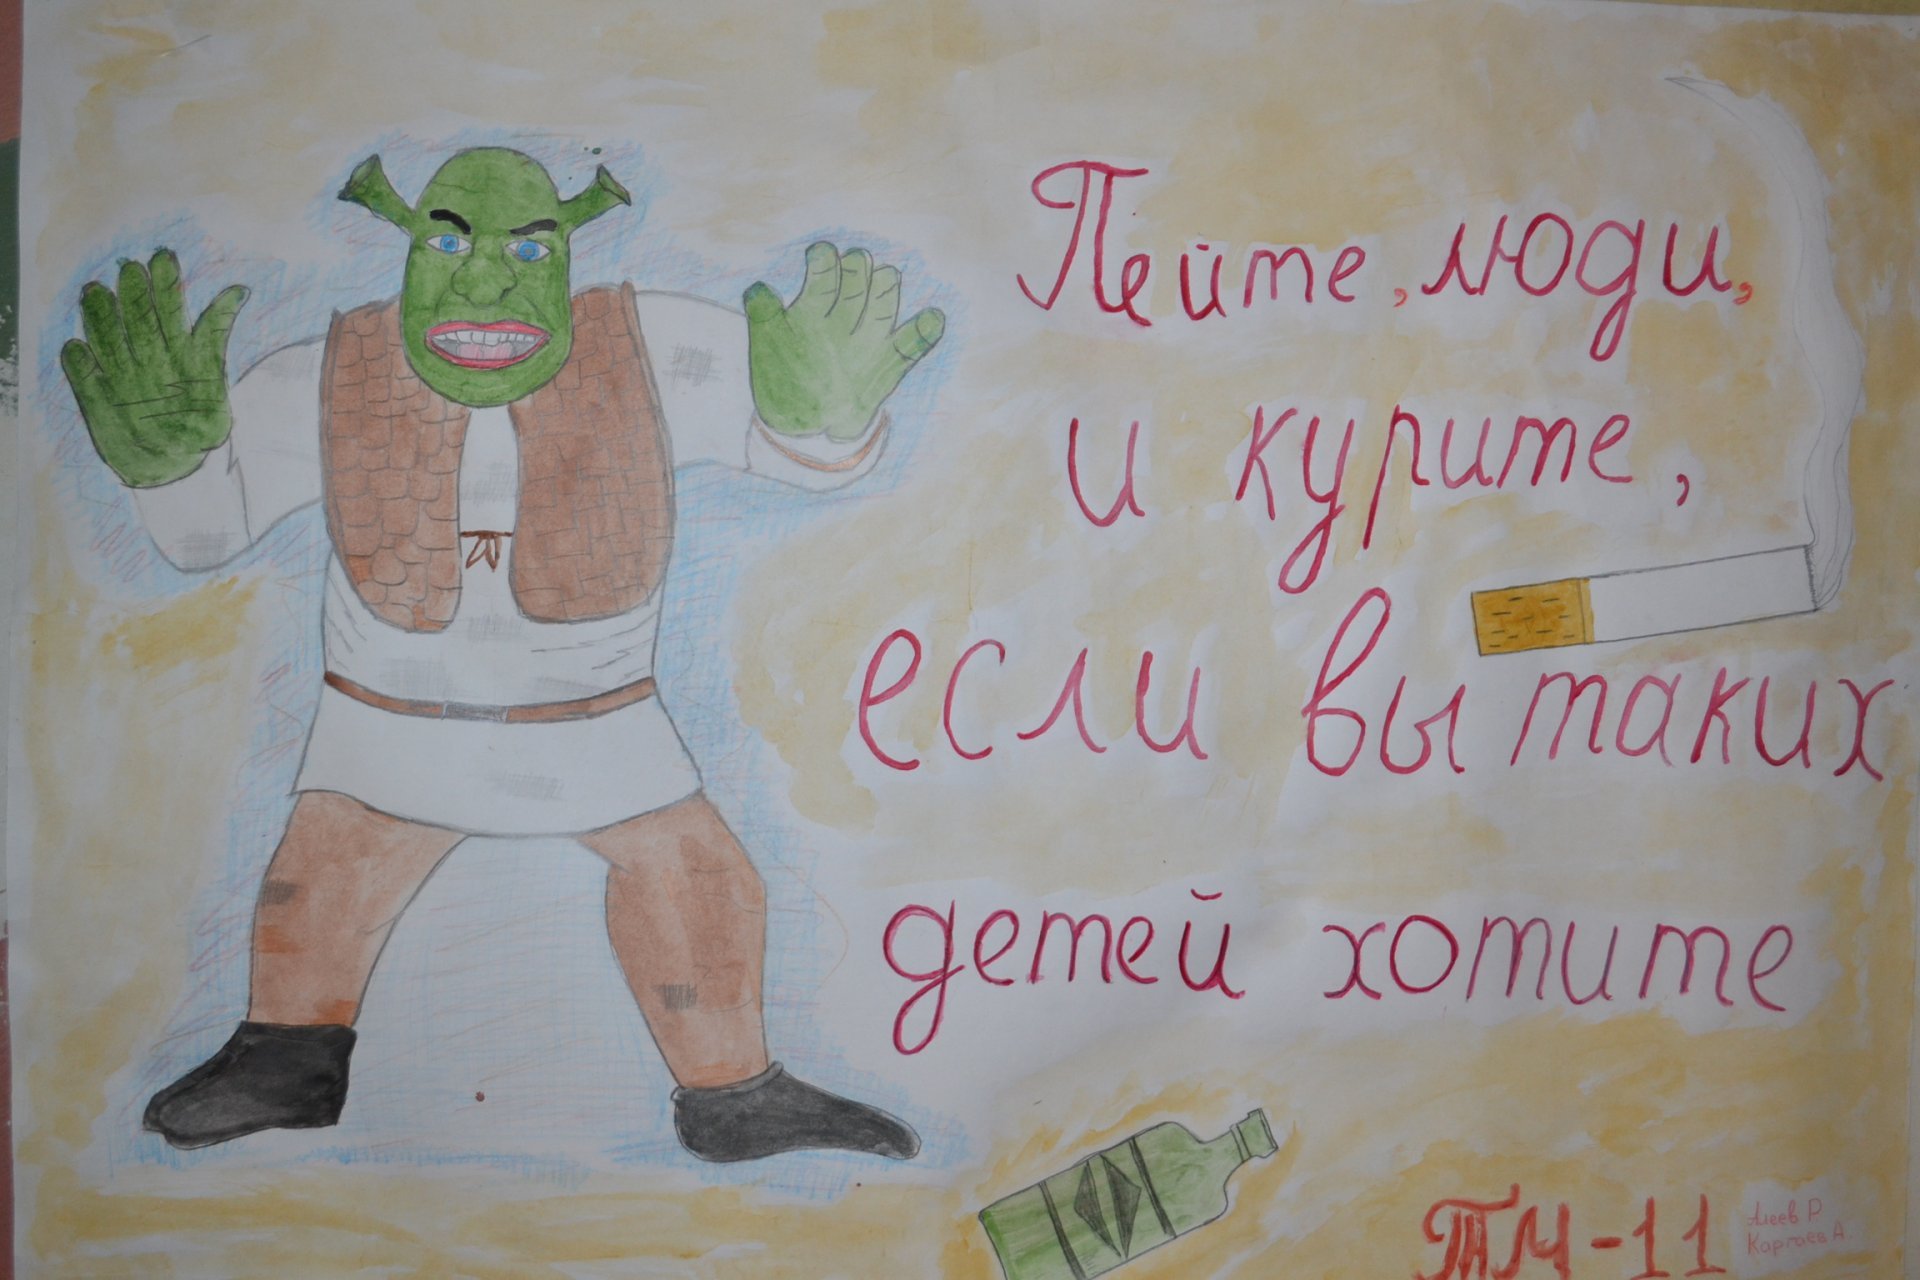 Пейте, люди,
и курите,
если вы таких
детей хотите
ТМ-11
Алеев Р.
Каргаев А.